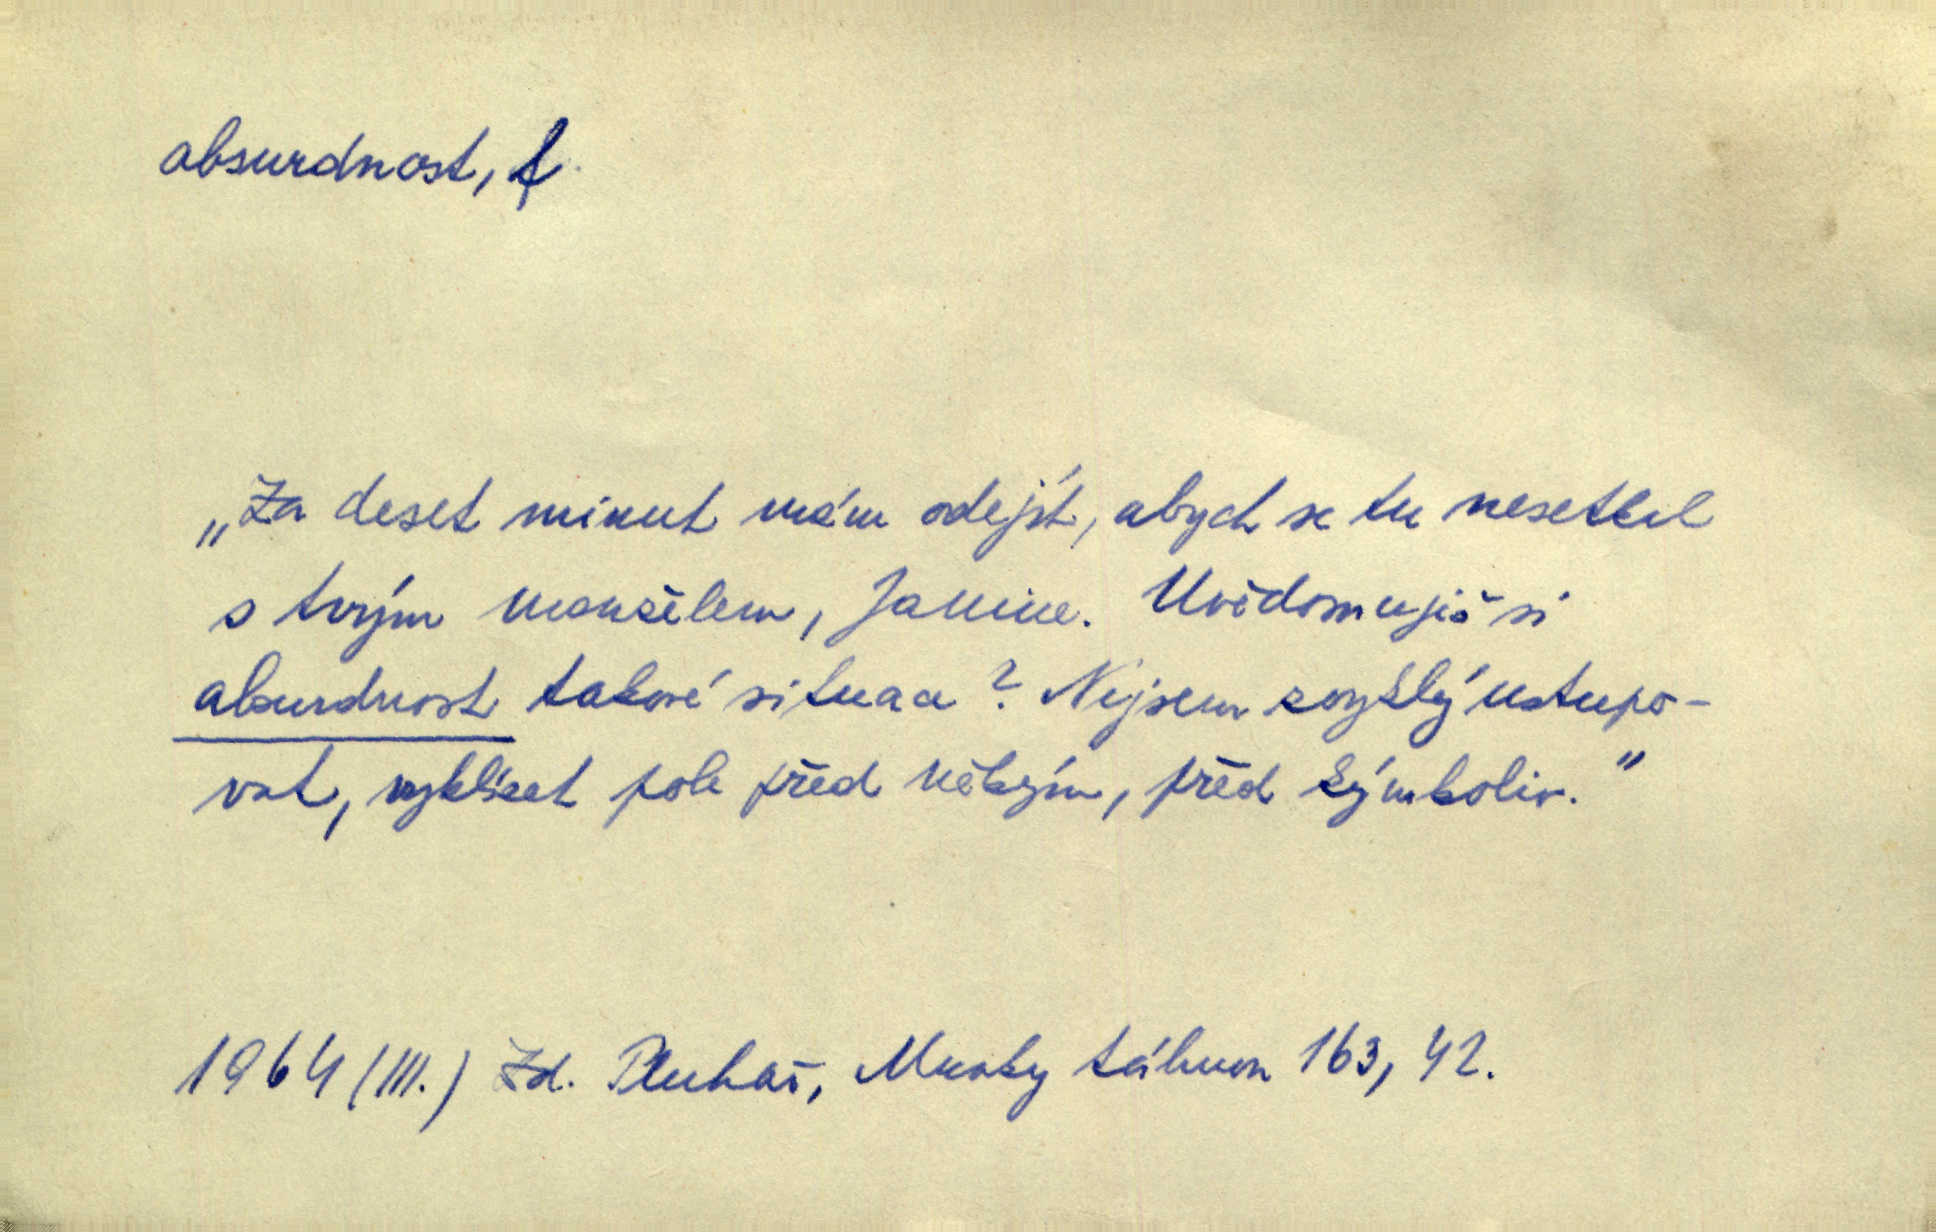 absurdnost, f.
„Za deset minut mám odejít, abych se tu nesetkal
s tvým manželem, Janine. Uvědomuješ si
absurdnost takové situace? Nejsem zvyklý ustupo-
vat, vyklízet pole před někým, před kýmkoliv."
1964 (III.) Zd. Pluhař, Mraky táhnou 163, 42.